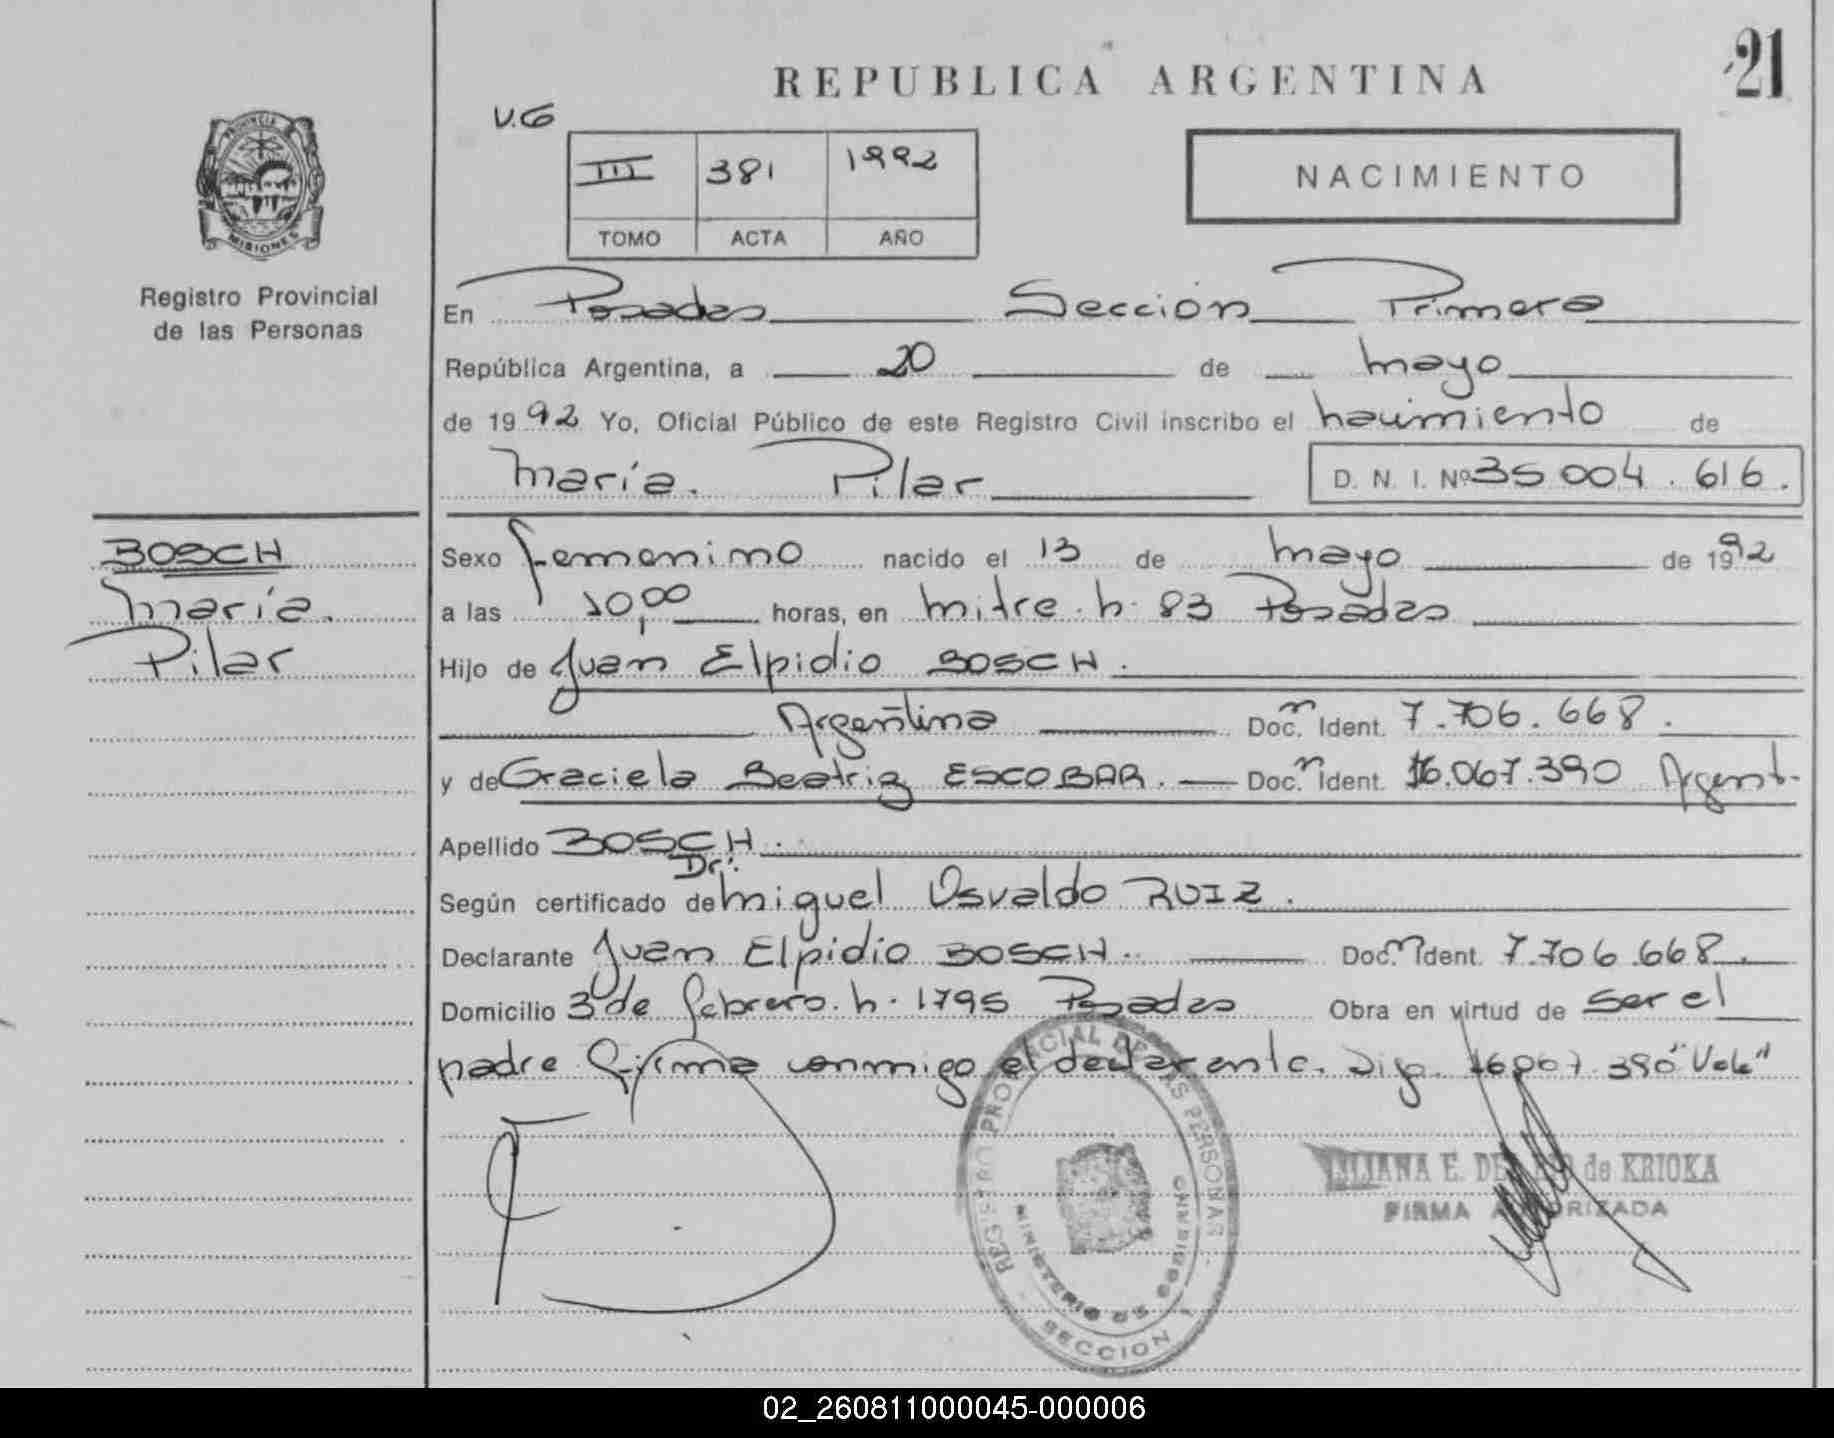 21
REPUBLICA ARGENTINA
V.G
III 381 1992
TOMO ACTA AÑO
NACIMIENTO
PROVINCIA
MISIONES
Registro Provincial
de las Personas
En Posadas Sección Primera
República Argentina, a 20 de mayo
de 1992 Yo, Oficial Público de este Registro Civil inscribo el nacimiento de
María Pilar D. N. I. Nº 35004.616.
BOSCH
María
Pilar
Sexo femenino nacido el 13 de mayo de 1992
a las 10,00 horas, en mitre. n. 83 Posadas
Hijo de Juan Elpidio BOSCH.
Argentina Doc. m Ident. 7.706.668.
y de Graciela Beatriz ESCOBAR. Doc. m Ident. 16.067.390 Argent.
Apellido BOSCH.
Según certificado de Dr: Miguel Osvaldo RUIZ.
Declarante Juan Elpidio BOSCH. Doc. m Ident. 7.706.668.
Domicilio 3 de febrero. n. 1795 Posadas Obra en virtud de ser el
padre firma conmigo el declarante. Digo. 16067.390 "Vale"
REGISTRO PROVINCIAL DE LAS PERSONAS
MINISTERIO DE GOBIERNO
SECCION 1
LILIANA E. de KRIOKA
FIRMA AUTORIZADA
02_260811000045-000006